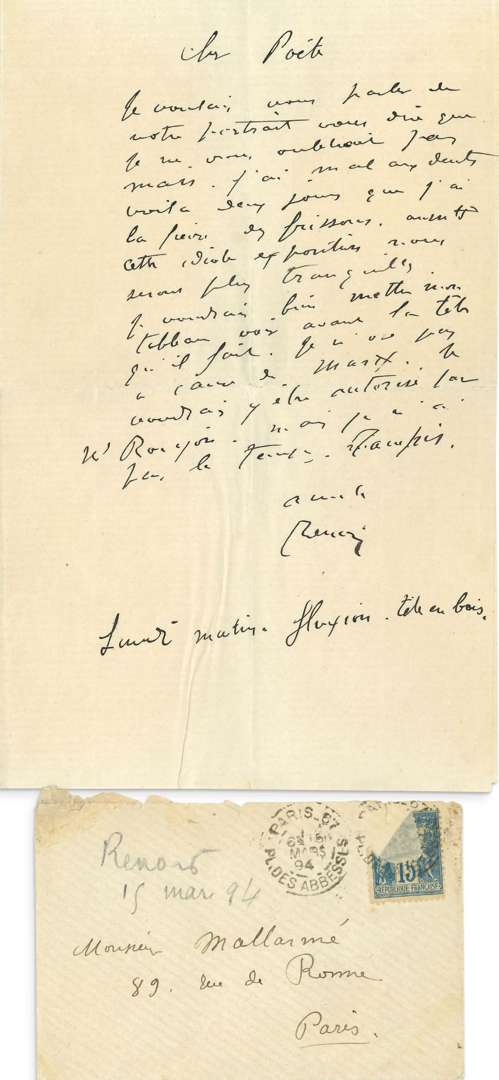 Cher Poète
Je voulais vous parler de
votre portrait vous dire que
je ne vous oubliais pas
mais. j'ai mal aux dents
voilà deux jours que j'ai
la fièvre des frissons. aussitôt
cette idiote exposition nous
serons plus tranquilles
Je voudrais bien mettre mon
tableau voir avant la tête
qu'il fait. Je n'ose pas
à cause de Marx. Je
voudrais y être autorisé par
Mr Roujon. mais je n'ai
pas le temps.
amitiés
Renoir
Lundi matin. fluxion. tête en bois.
PARIS-67
MARS
94
PL. DES ABBESSES
15
REPUBLIQUE FRANÇAISE
Renoir
15 mar 94
Monsieur Mallarmé
89. rue de Rome
Paris.